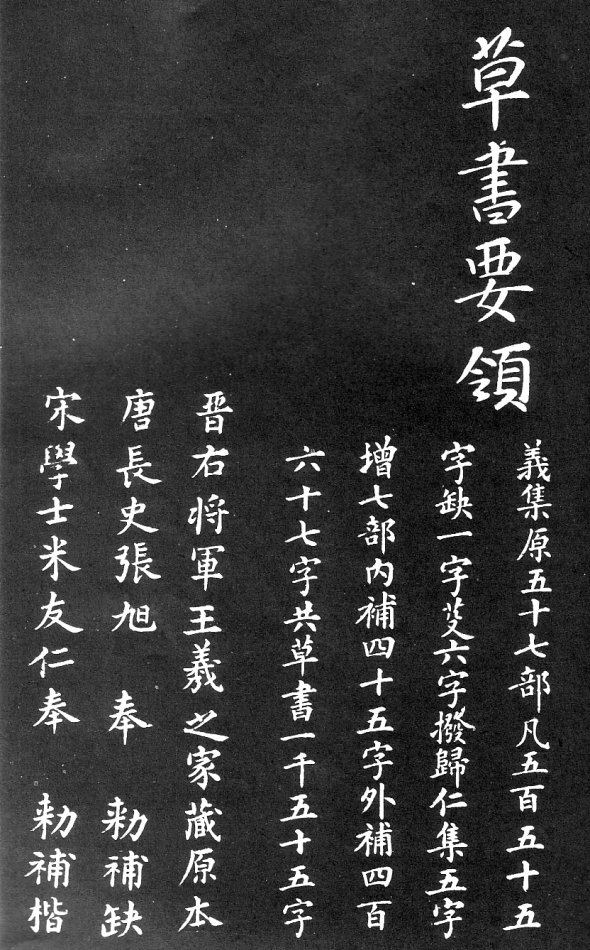 草書要領
義集原五十七部凡五百五十五
字缺一字芟六字撥歸仁集五字
增七部內補四十五字外補四百
六十七字共草書一千五十五字
晋右将軍王羲之家藏原本
唐長史張旭 奉 勅補缺
宋學士米友仁奉 勅補楷